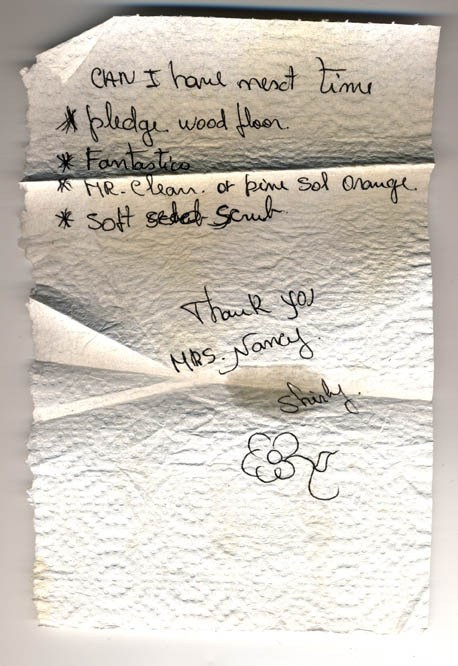 CAN I have next time
* pledge. wood floor.
* Fantastico
* MR. Clean. or pine sol orange.
* Soft Scrub.
Thank you
MRS. Nancy.
Shirly.